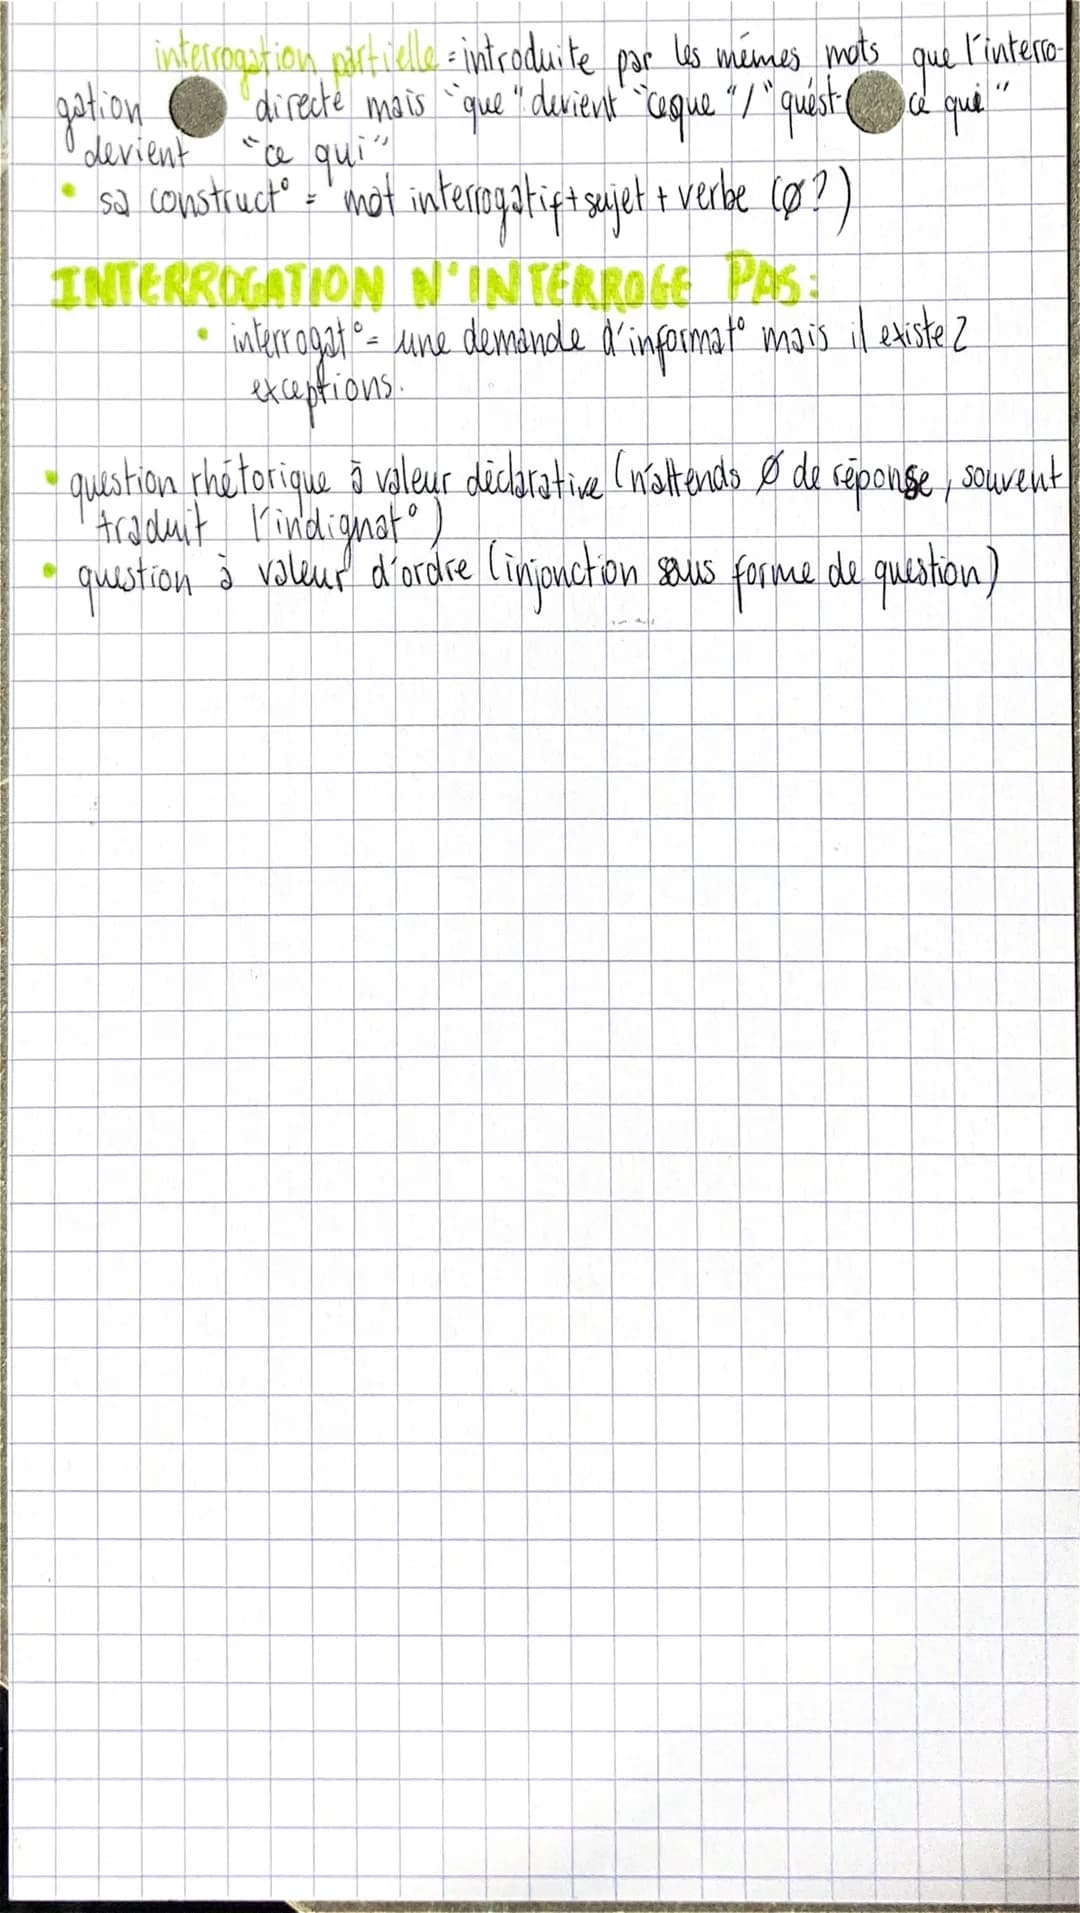 interrogation partielle = introduite par les mêmes mots que l'interro-
gation directe mais "que" devient "ceque" / "qu'est-ce qui"
devient "ce qui"
• sa construct° = mot interrogatif + sujet + verbe (ø?)
INTERROGATION N'INTERROGE PAS :
• interrogat° = une demande d'informat° mais il existe 2
exceptions.
• question rhétorique à valeur déclarative (n'attends ø de réponse, souvent
traduit l'indignat°)
• question à valeur d'ordre (injonction sous forme de question)